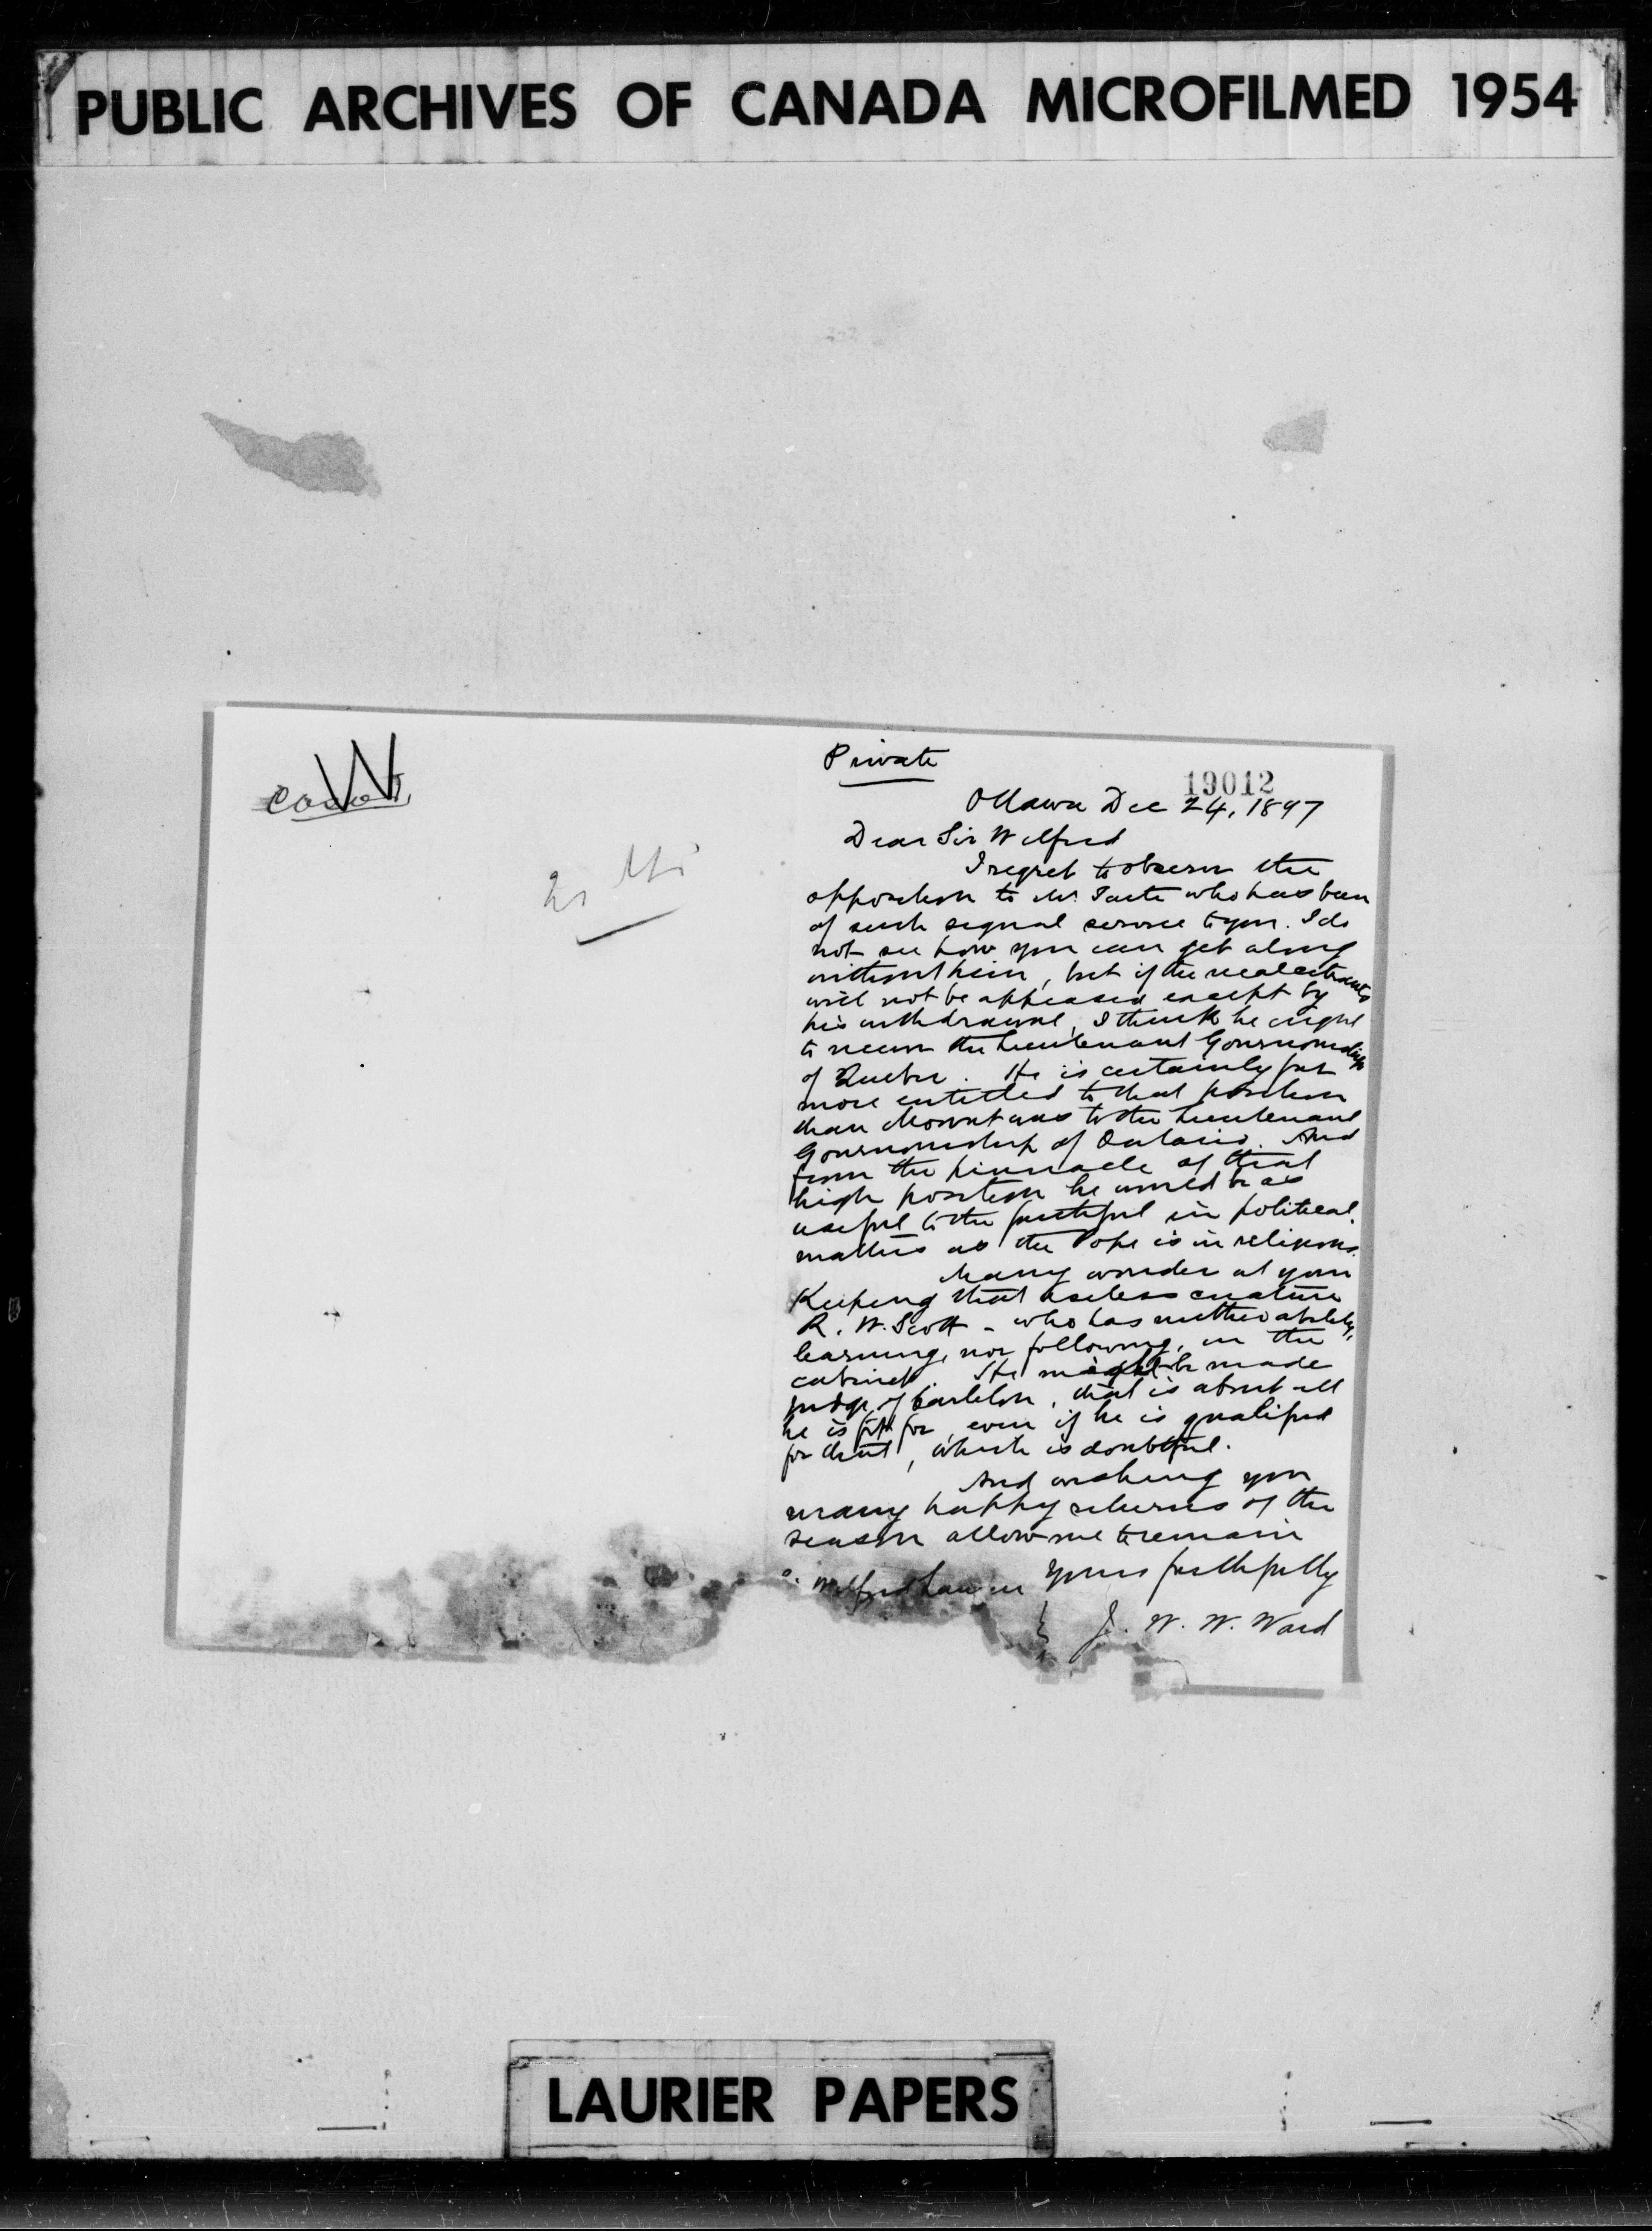 PUBLIC ARCHIVES OF CANADA MICROFILMED 1954
W
Private
19012
Ottawa Dec 24, 1897
Dear Sir Wilfred
I regret to observe the
opposition to Mr. Tarte who has been
of such signal service to you. I do
not see how you can get along
without him, but if the recalcitrants
will not be appeased except by
his withdrawal, I think he ought
to receive the Lieutenant Governorship
of Quebec. He is certainly far
more entitled to that position
than Mowat was to the Lieutenant
Governorship of Ontario. And
from the pinnacle of that
high position he would be as
useful to the faithful in political
matters as the Pope is in religious.
Many wonder at your
Keeping that useless creature
R. W. Scott - who has neither ability,
learning, nor following, in the
cabinet. He might be made
judge of Carleton, that is about all
he is fit for, even if he is qualified
for that, which is doubtful.
And wishing you
many happy returns of the
season allow me to remain
Yours faithfully
Wilfred Laurier
J. W. W. Ward
LAURIER PAPERS